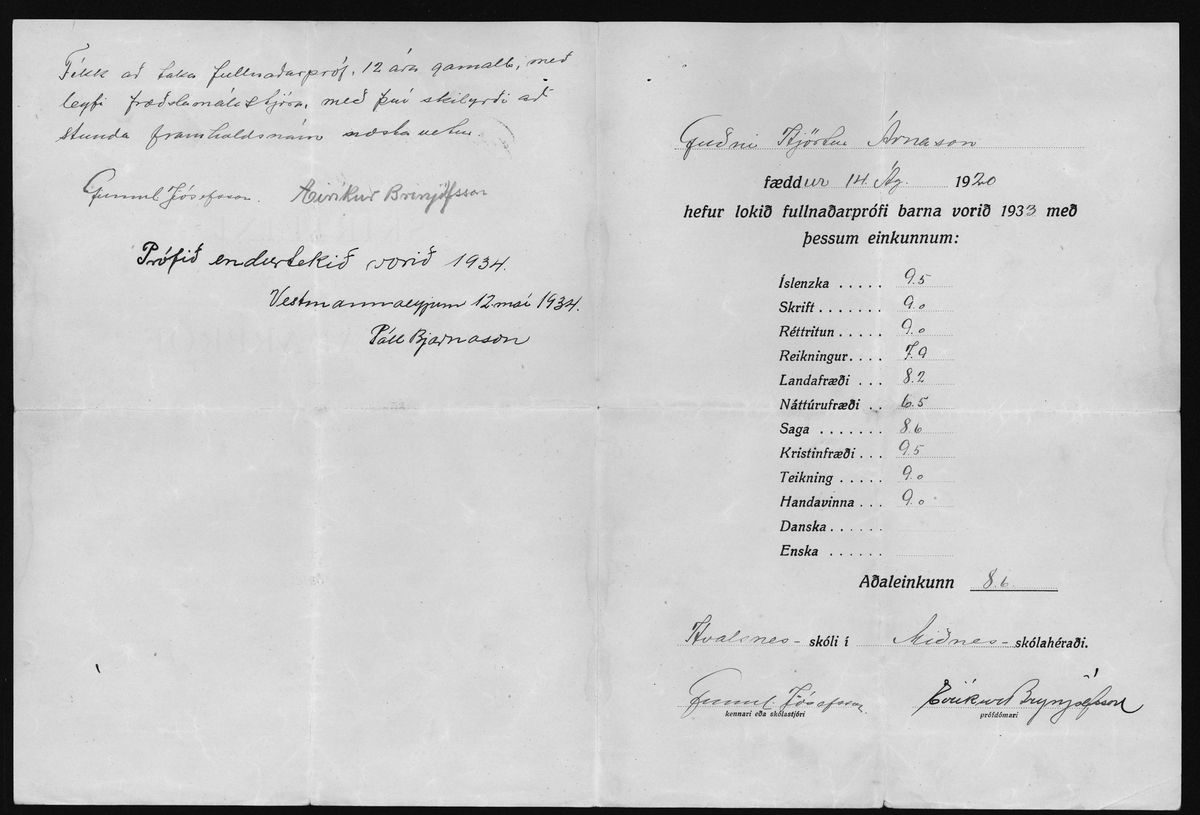 Fékk að taka fullnaðarpróf, 12 ára gamall, með
leyfi fræðslumálastjóra, með því skilyrði að
stunda framhaldsnám næsta vetur.
Gunnl. Jósefsson. Eiríkur Brynjólfsson
Prófið endurtekið vorið 1934.
Vestmannaeyjum 12. maí 1934.
Páll Bjarnason
Guðni Hjörtur Árnason
fæddur 14 Ág. 1920
hefur lokið fullnaðarprófi barna vorið 1933 með
þessum einkunnum:
Íslenzka ..... 9.5
Skrift ....... 9.0
Réttritun .... 9.0
Reikningur.... 7.9
Landafræði ... 8.2
Náttúrufræði .. 6.5
Saga ....... 8.6
Kristinfræði ... 9.5
Teikning ..... 9.0
Handavinna ... 9.0
Danska ......
Enska ......
Aðaleinkunn 8.6.
Hvalsnes - skóli í Miðnes - skólahéraði.
Gunnl. Jósefsson Eiríkur Brynjólfsson
kennari eða skólastjóri prófdómari